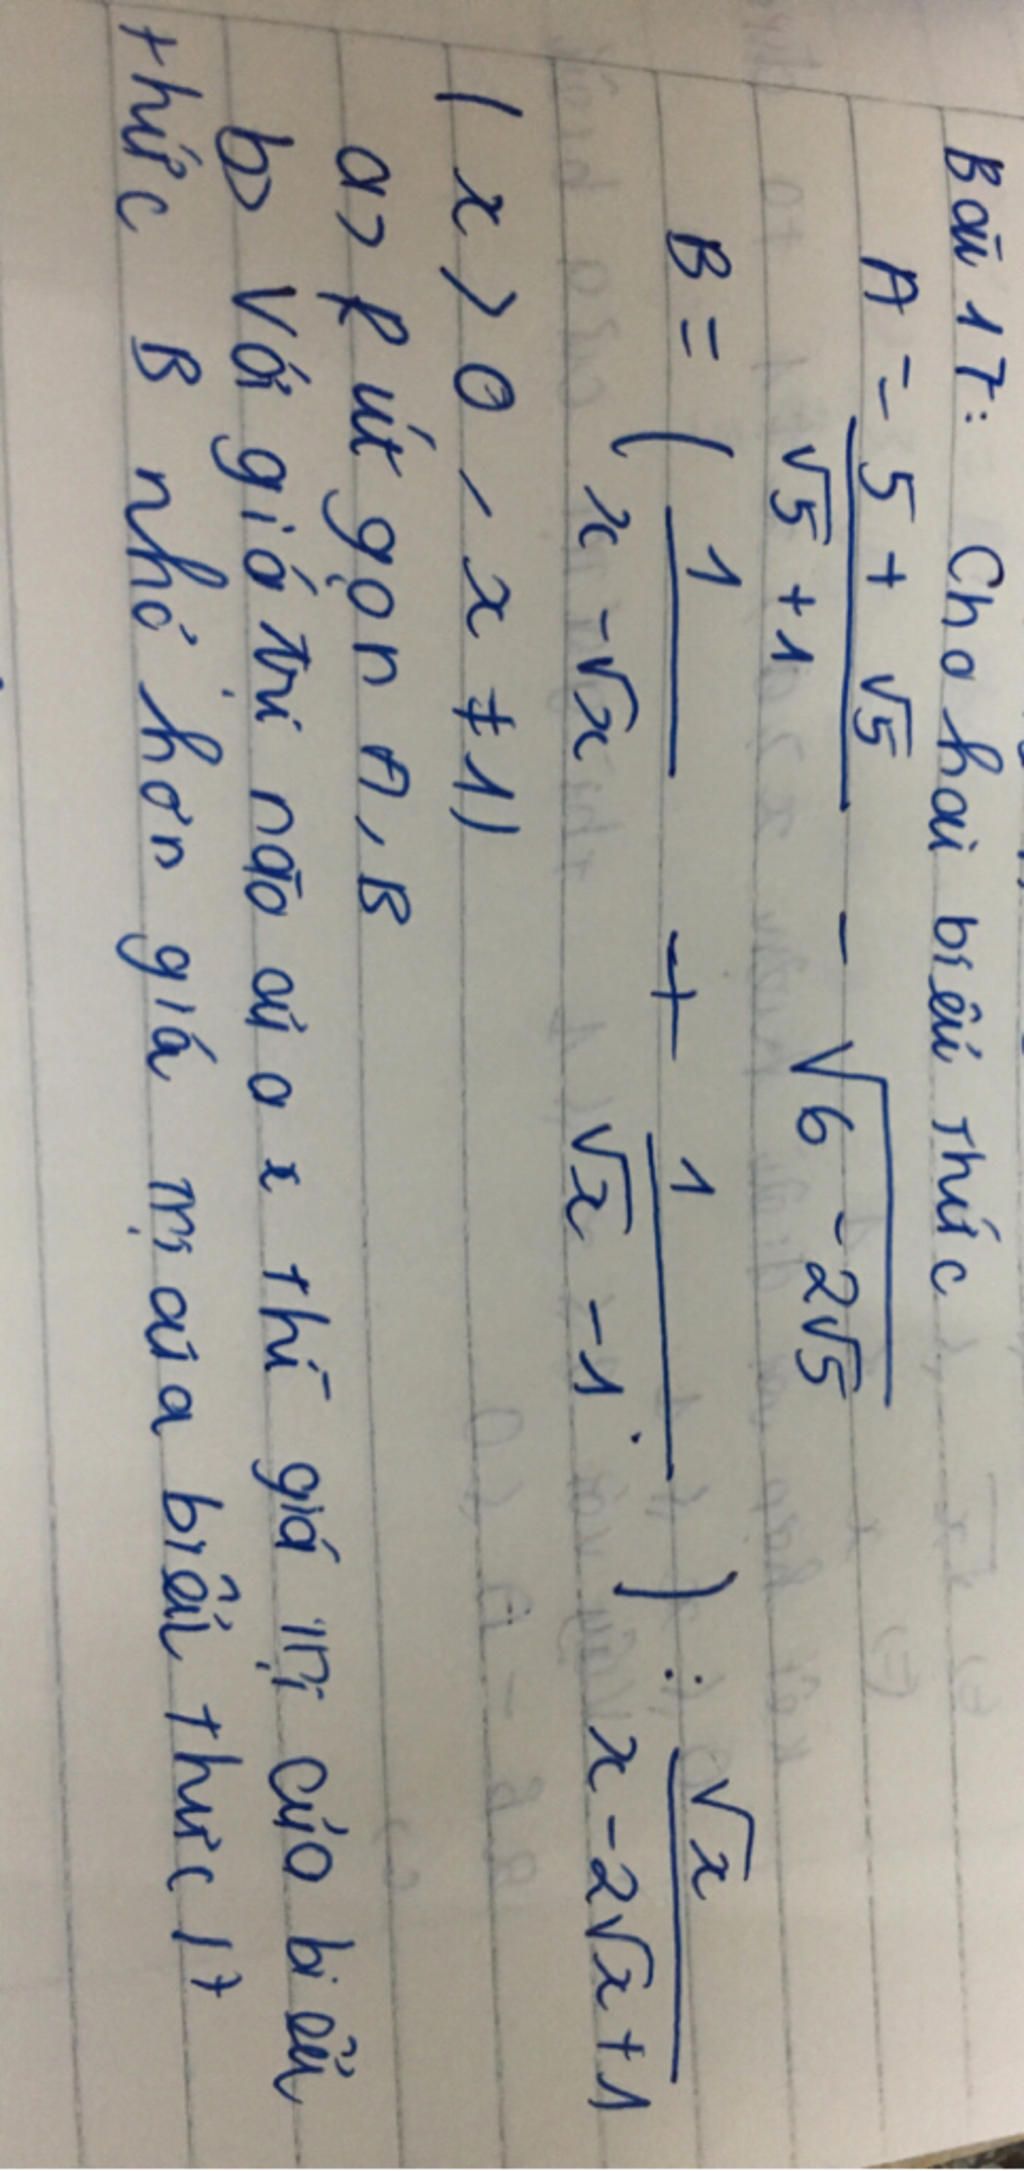 Bài 17: Cho hai biểu thức
A = \frac{5 + √5}{√5 + 1} - \sqrt{6 - 2√5}
B = ( \frac{1}{x - √x} + \frac{1}{√x - 1} ) : \frac{√x}{x - 2√x + 1}
( x > 0, x ≠ 1)
a> Rút gọn A, B
b> Với giá trị nào của x thì giá trị của biểu
thức B nhỏ hơn giá trị của biểu thức